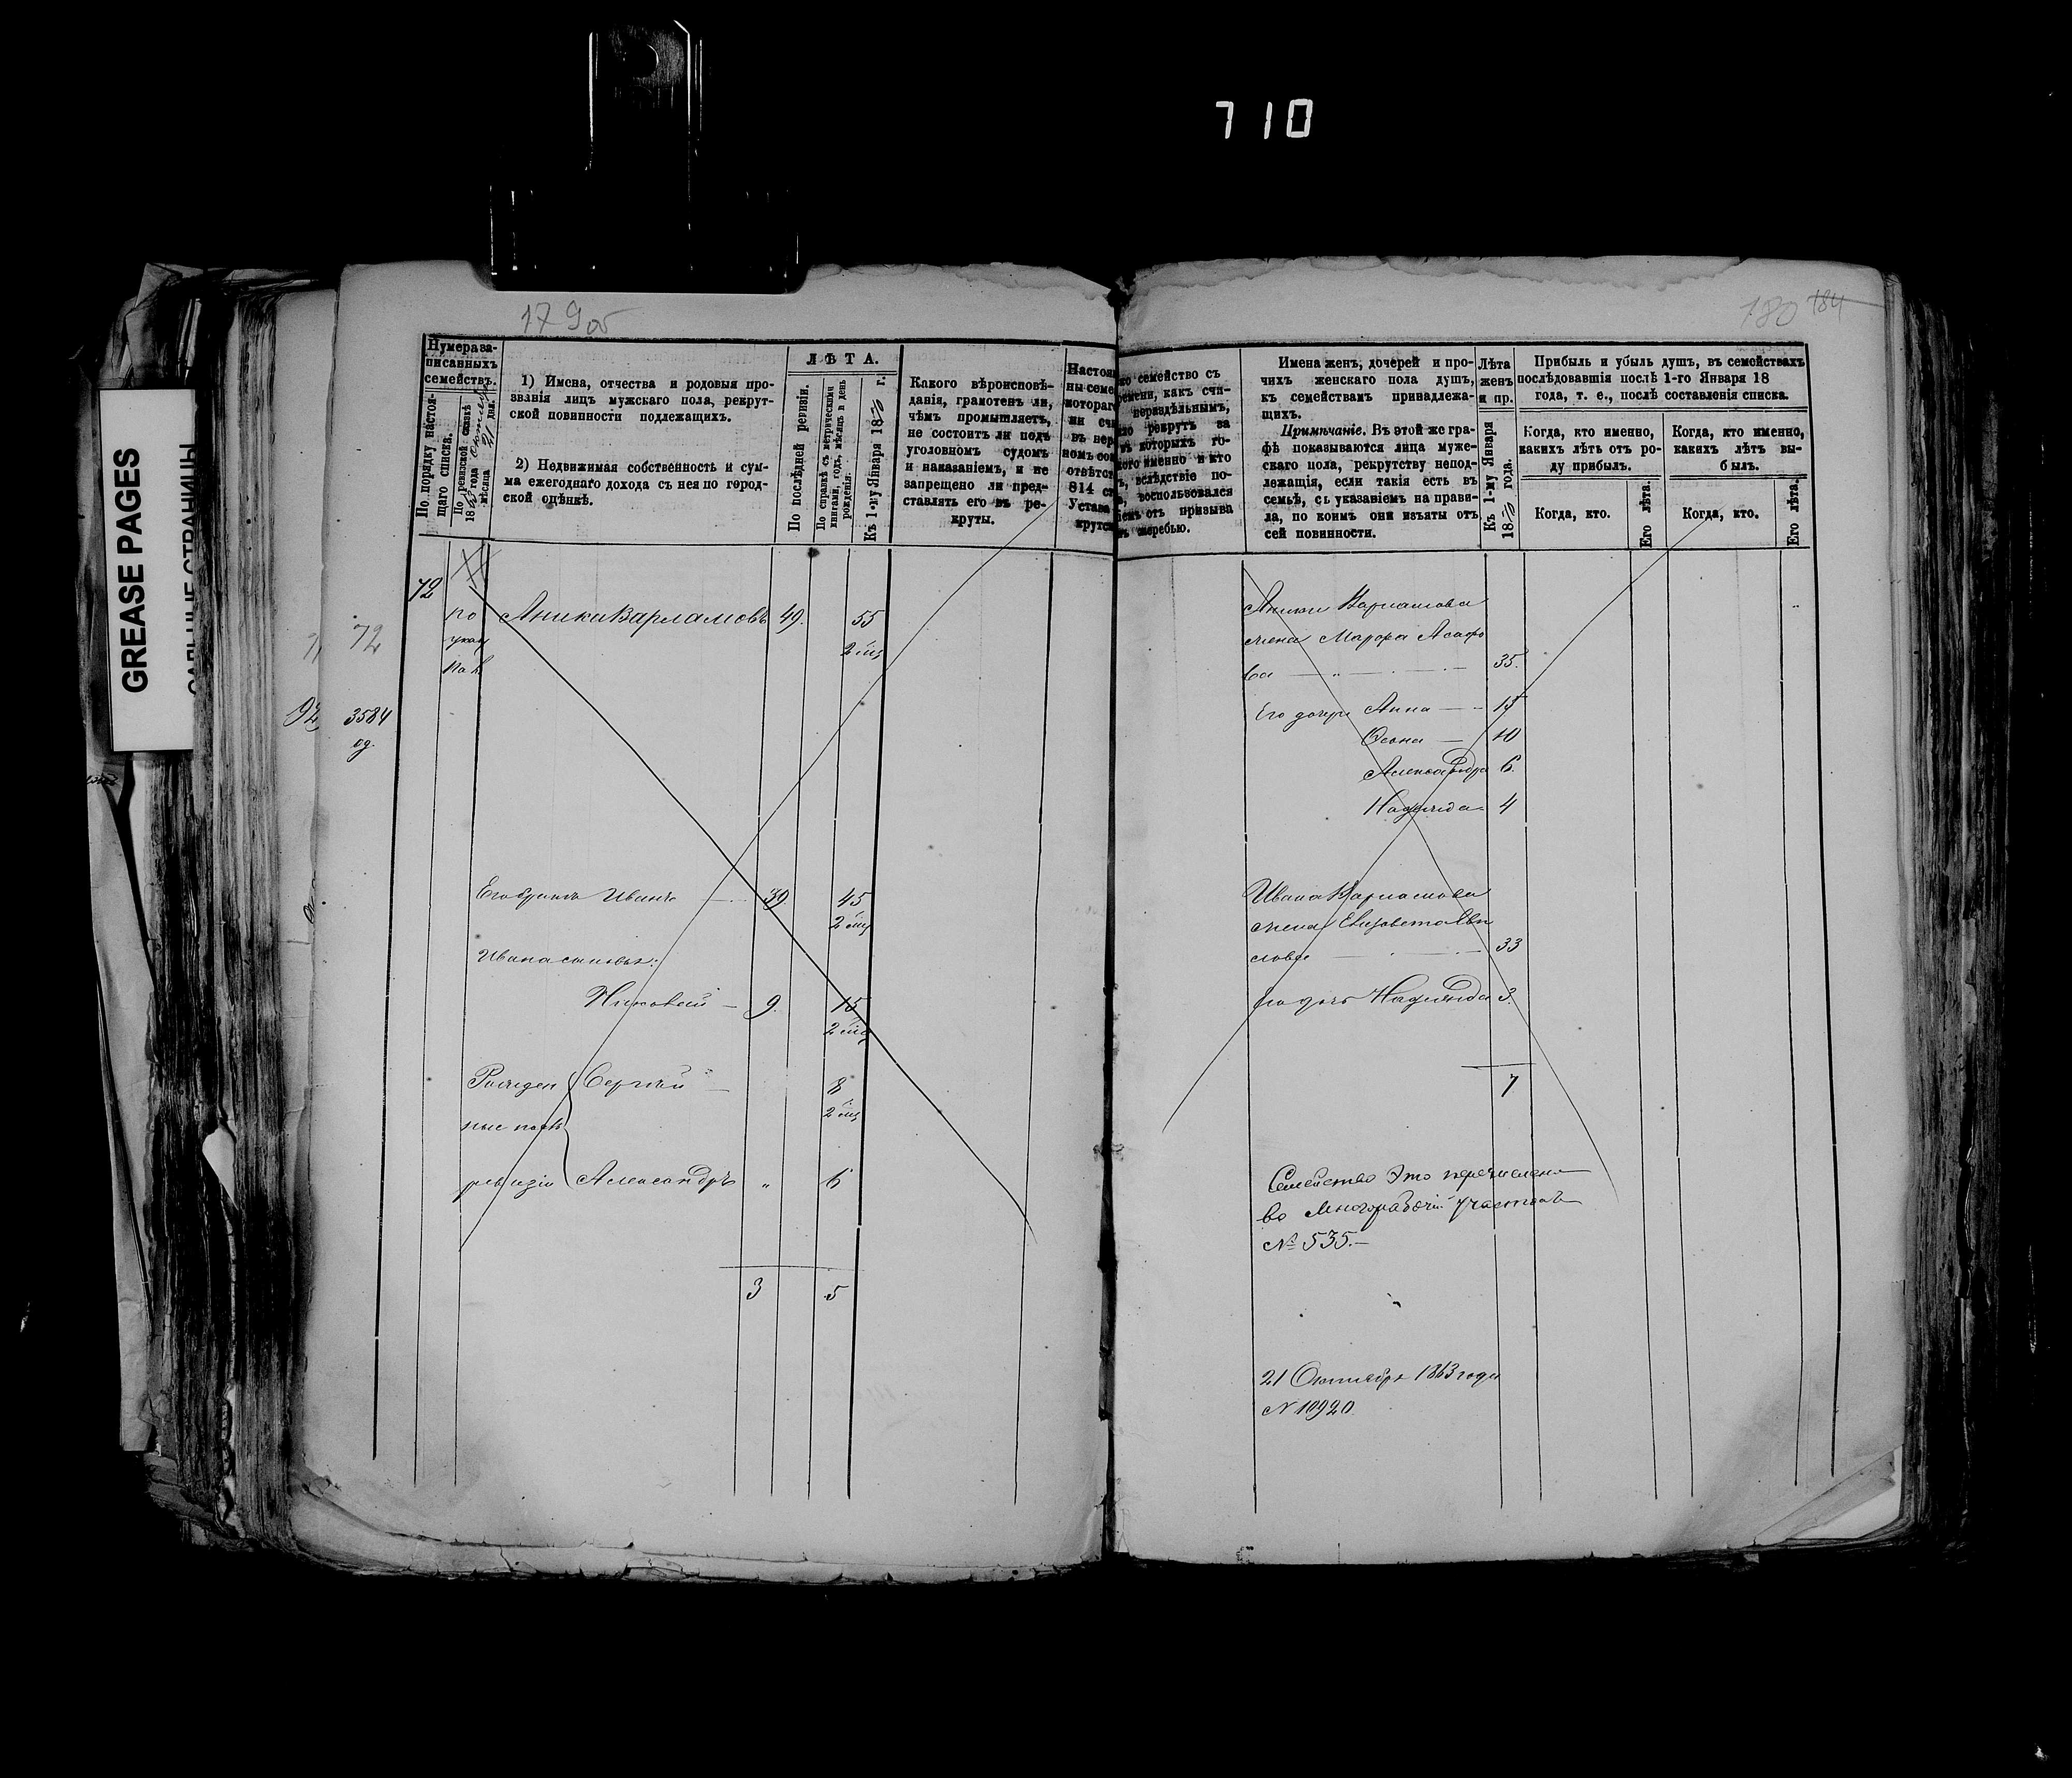 710
GREASE PAGES
САЛЬНЫЕ СТРАНИЦЫ
179 об
180 184
Нумера за-
писанныхъ
семействъ.
По порядку настоя-
щаго списка.
По ревизской сказкѣ
18 года
мѣсяца дня.
1) Имена, отчества и родовыя про-
званія лицъ мужскаго пола, рекрут-
ской повинности подлежащихъ.
2) Недвижимая собственность и сум-
ма ежегоднаго дохода съ нея по город-
ской оцѣнкѣ.
ЛѢТА.
По послѣдней ревизіи.
По справкѣ съ метрическими
книгами, годъ, мѣсяцъ и день
рожденія.
Къ 1-му Января 18 г.
Какого вѣроисповѣ-
данія, грамотенъ ли,
чѣмъ промышляетъ,
не состоитъ ли подъ
уголовномъ судомъ
и наказаніемъ, и не
запрещено ли пред-
ставлять его въ ре-
круты.
814 ст
Устава
семейство съ
какъ счи-
нераздѣльнымъ,
рекрутъ за
которыхъ го-
именно и кто
вслѣдствіе по-
воспользовался
отъ призыва
жеребью.
Имена женъ, дочерей и про-
чихъ женскаго пола душъ,
къ семействамъ принадлежа-
щихъ.
Примѣчаніе. Въ этой же гра-
фѣ показываются лица муже-
скаго пола, рекрутству непод-
лежащія, если такія есть въ
семьѣ, съ указаніемъ на прави-
ла, по коимъ они изъяты отъ
сей повинности.
Лѣта
женъ
и пр.
Къ 1-му Января
18 года.
Прибыль и убыль душъ, въ семействахъ
послѣдовавшія послѣ 1-го Января 18
года, т. е., послѣ составленія списка.
Когда, кто именно,
какихъ лѣтъ отъ ро-
ду прибылъ.
Когда, кто именно,
какихъ лѣтъ вы-
былъ.
Когда, кто.
Его лѣта.
Когда, кто.
Его лѣта.
72
72
3584
од.
по
указу
Аника Варламовъ 49. 55
Его братъ Иванъ 39 45
Ивана сыновья:
Николай 9. 15
Рожден Сергѣй 8
ные послѣ
ревизіи Александръ " 6
3 5
Аники Варламова
жена Марфа Асафо
ва 35.
Его дочери Анна 15
10
Александра 6.
Надежда 4
Ивана Варламова
жена Елизавета
33
дочь Надежда 3.
7
Семейство это перечислено
во Многорабочій участокъ
№ 535.
21 Октября 1863 года
№ 10920.